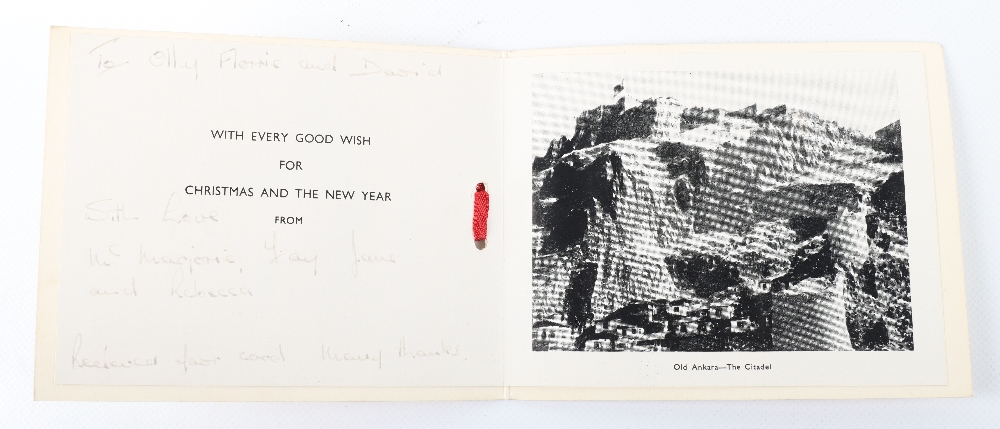 To Olly Florrie and David
WITH EVERY GOOD WISH
FOR
CHRISTMAS AND THE NEW YEAR
FROM
Love
Marjorie, Fay Jane
and Rebecca
Received your card Many thanks.
Old Ankara—The Citadel